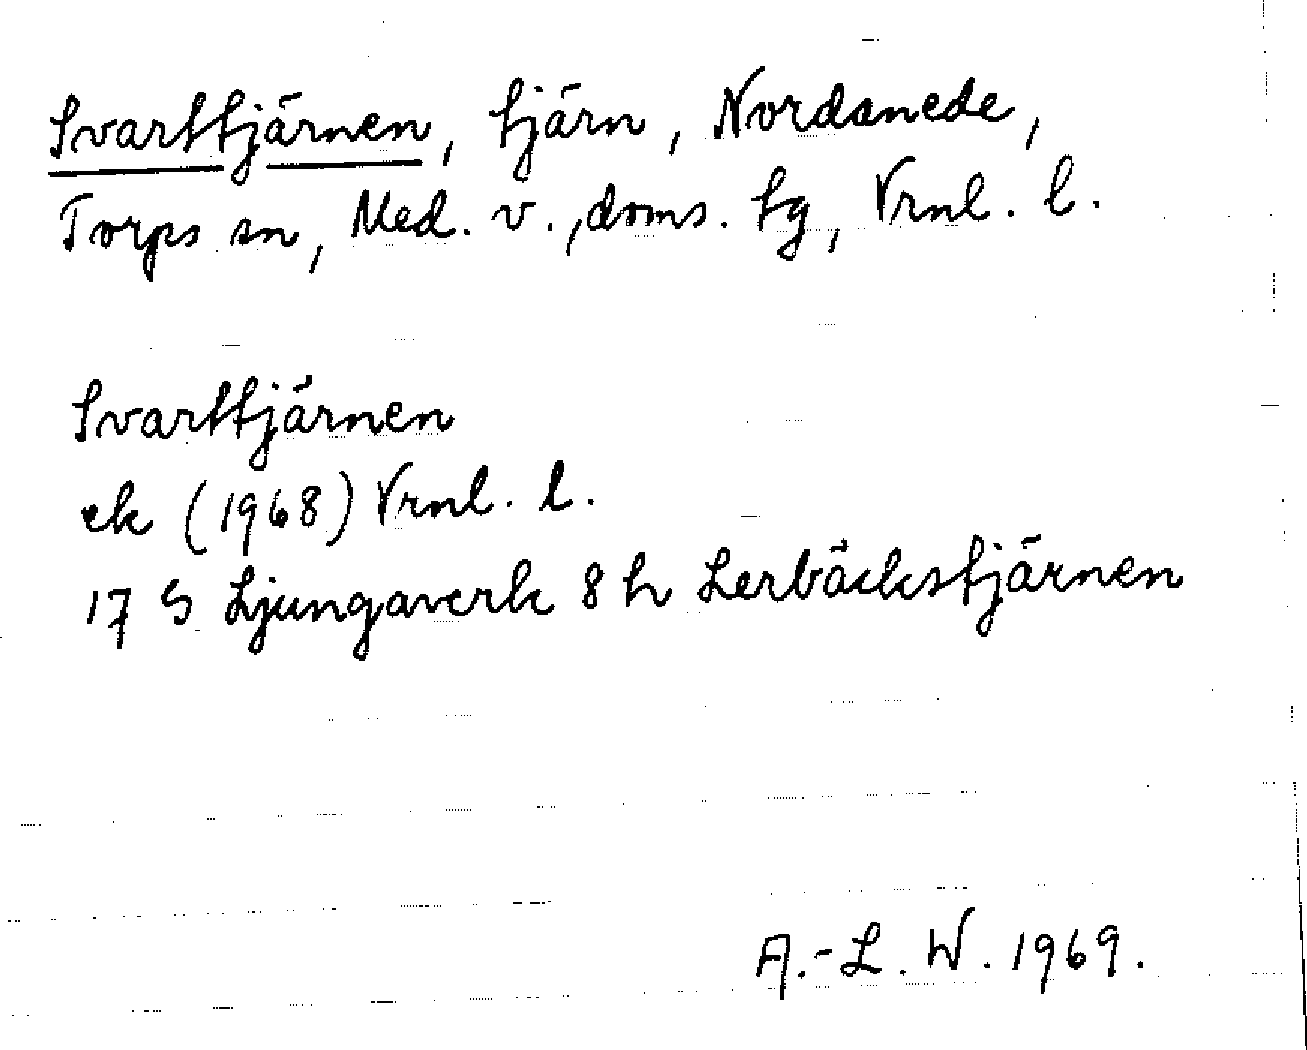 Svarttjärnen, tjärn, Nordanede,
Torps sn, Med. v., doms. tg, Vrnl. l.
Svarttjärnen
ek (1968) Vrnl. l.
17 G Ljungaverk 8 h Lerbäckstjärnen
A.-L. W. 1969.